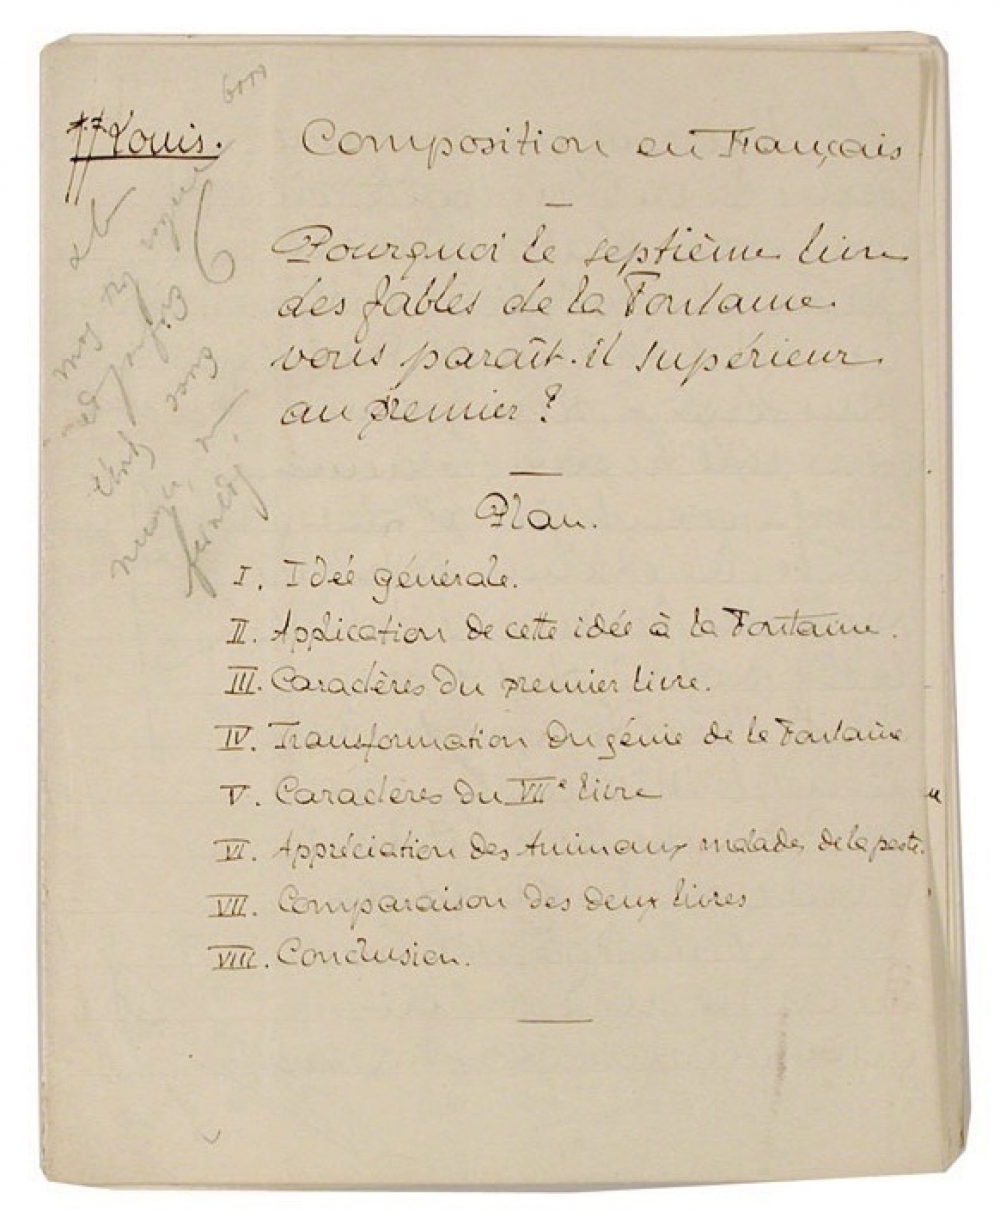 Louis.
Composition en Français
Pourquoi le septième livre
des fables de la Fontaine
vous paraît-il supérieur
au premier ?
Plan.
I. Idée générale.
II. Application de cette idée à la Fontaine.
III. Caractères du premier livre.
IV. Transformation du génie de la Fontaine
V. Caractères du VIIe livre
VI. Appréciation des Animaux malades de la peste.
VII. Comparaison des deux livres
VIII. Conclusion.